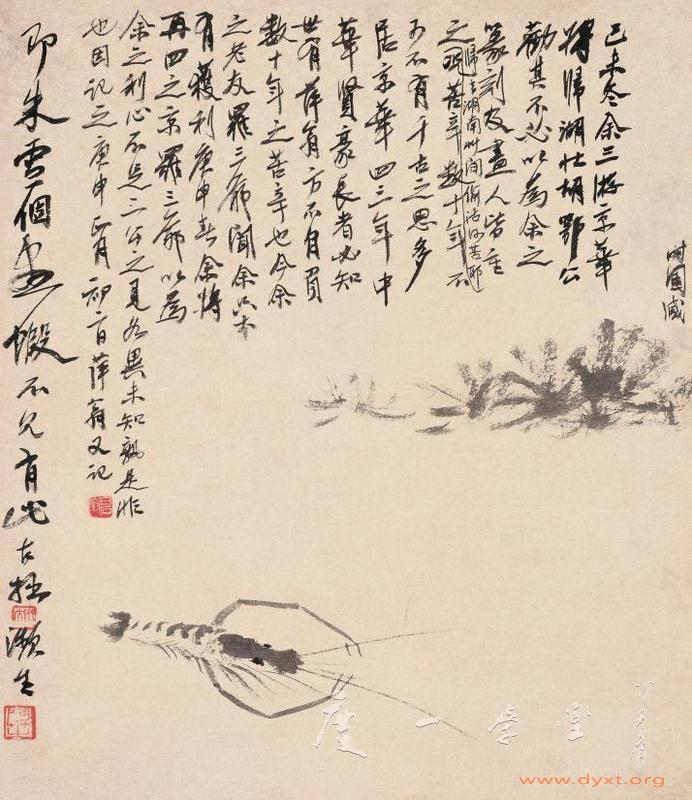 時國滅
己未冬余三游京華
将歸湖北胡鄂公
勸其不必以為余之
篆刻及畫人皆重
之
歸去湖南草間偷活何苦耶
苦辛數十年不
可不有千古之思多
居京華四三年中
華賢豪長者必知
世有萍翁方不自負
數十年之苦辛也今余
之老友羅三爺聞余只本
有獲利庚申春余將
再四之京羅三爺以為
余之利心不足二公之見各異未知孰是非
也因記之庚申正月初二日萍翁又記
即朱雪個畫蝦不見有此古拙
瀕生
度一学堂
www.dyxt.org